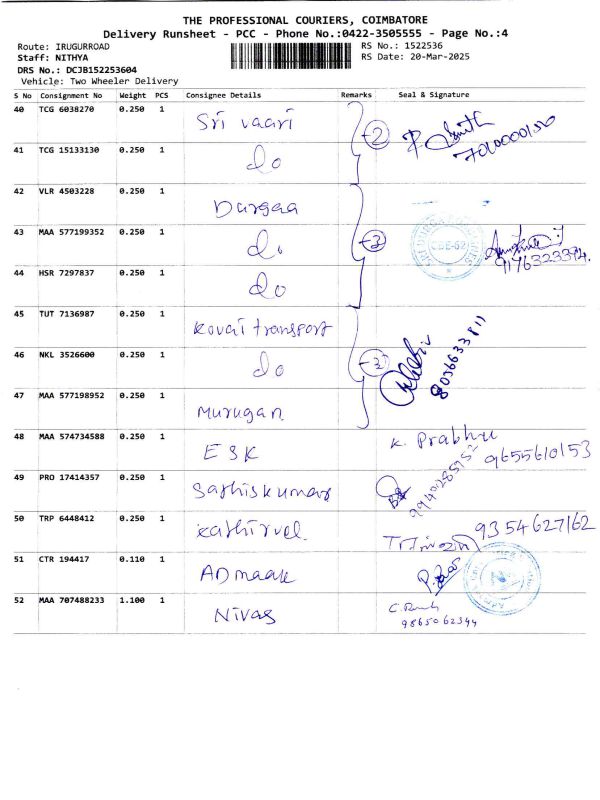 THE PROFESSIONAL COURIERS, COIMBATORE
Delivery Runsheet - PCC - Phone No.:0422-3505555 - Page No.:4
Route: IRUGURROAD
RS No.: 1522536
Staff: NITHYA
RS Date: 20-Mar-2025
DRS No.: DCJB152253604
Vehicle: Two Wheeler Delivery
S No Consignment No Weight PCS Consignee Details Remarks Seal & Signature
40 TCG 6038270 0.250 1 Sri vaari 2
7010000156
41 TCG 15133130 0.250 1 do
42 VLR 4503228 0.250 1 Durgaa
43 MAA 577199352 0.250 1 do 3 CBE-62
9176323394.
44 HSR 7297837 0.250 1 do
45 TUT 7136987 0.250 1 Kovai transport
8036633811
46 NKL 3526600 0.250 1 do 3
47 MAA 577198952 0.250 1 Murugan
48 MAA 574734588 0.250 1 ESK K. Prabhu
9655610153
49 PRO 17414357 0.250 1 Sathiskumar 9940285952
50 TRP 6448412 0.250 1 Kathirvel 9354627162
51 CTR 194417 0.110 1 ADmaak
52 MAA 707488233 1.100 1 Nivas
9865062344